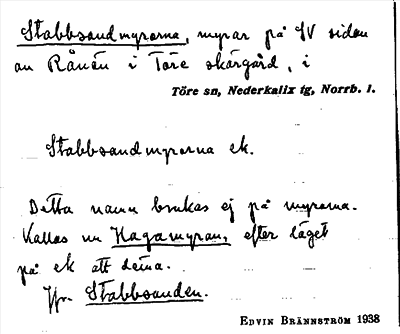 Stabbsandmyrarna, myrar på SV sidan
av Rånön i Töre skärgård, i
Töre sn, Nederkalix tg, Norrb. l.
Stabbsandmyrarna ek.
Detta namn brukas ej på myrarna.
Kallas nu Hagamyran, efter läget
på ek att döma.
Jfr. Stabbsanden.
EDVIN BRÄNNSTRÖM 1938